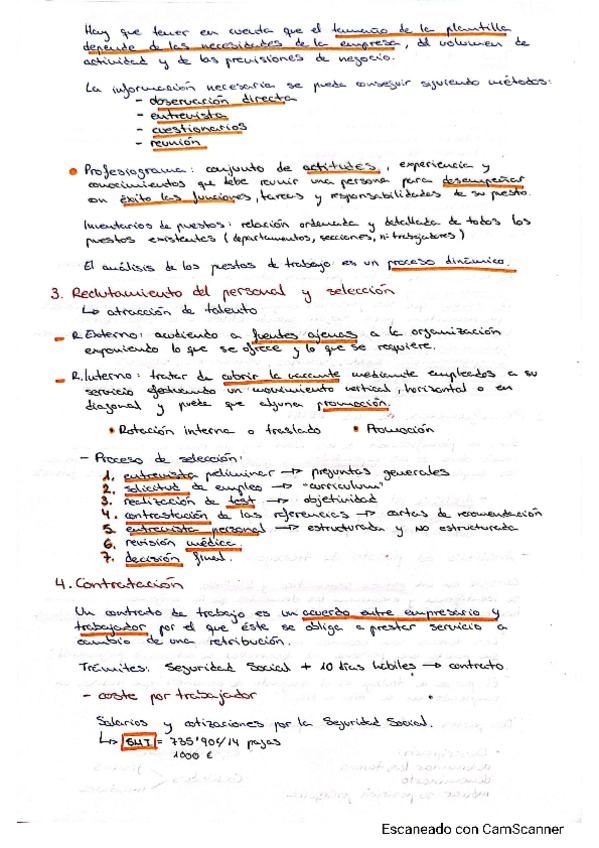 Hay que tener en cuenta que el tamaño de la plantilla
depende de las necesidades de la empresa, del volumen de
actividad y de las previsiones de negocio.
La información necesaria se puede conseguir siguiendo métodos:
- observación directa
- entrevista
- cuestionarios
- reunión
• Profesiograma: conjunto de actitudes, experiencia y
conocimientos que debe reunir una persona para desempeñar
con éxito las funciones, tareas y responsabilidades de su puesto.
Inventarios de puestos: relación ordenada y detallada de todos los
puestos existentes (departamentos, secciones, nº trabajadores)
El análisis de los puestos de trabajo es un proceso dinámico.
3. Reclutamiento del personal y selección
↳ atracción de talento
- R. Externo: acudiendo a fuentes ajenas a la organización
exponiendo lo que se ofrece y lo que se requiere.
- R. Interno: tratar de cubrir la vacante mediante empleados a su
servicio efectuando un movimiento vertical, horizontal o en
diagonal y puede que alguna promoción.
• Rotación interna o traslado • Promoción
- Proceso de selección:
1. entrevista preliminar → preguntas generales
2. solicitud de empleo → "curriculum"
3. realización de test → objetividad
4. contrastación de las referencias → cartas de recomendación
5. entrevista personal → estructurada y no estructurada
6. revisión médica
7. decisión final.
4. Contratación
Un contrato de trabajo es un acuerdo entre empresario y
trabajador por el que éste se obliga a prestar servicio a
cambio de una retribución.
Trámites: Seguridad Social + 10 días hábiles → contrato
- coste por trabajador
Salarios y cotizaciones por la Seguridad Social.
↳ SMI = 735'90€/14 pagas
1000 €
Escaneado con CamScanner